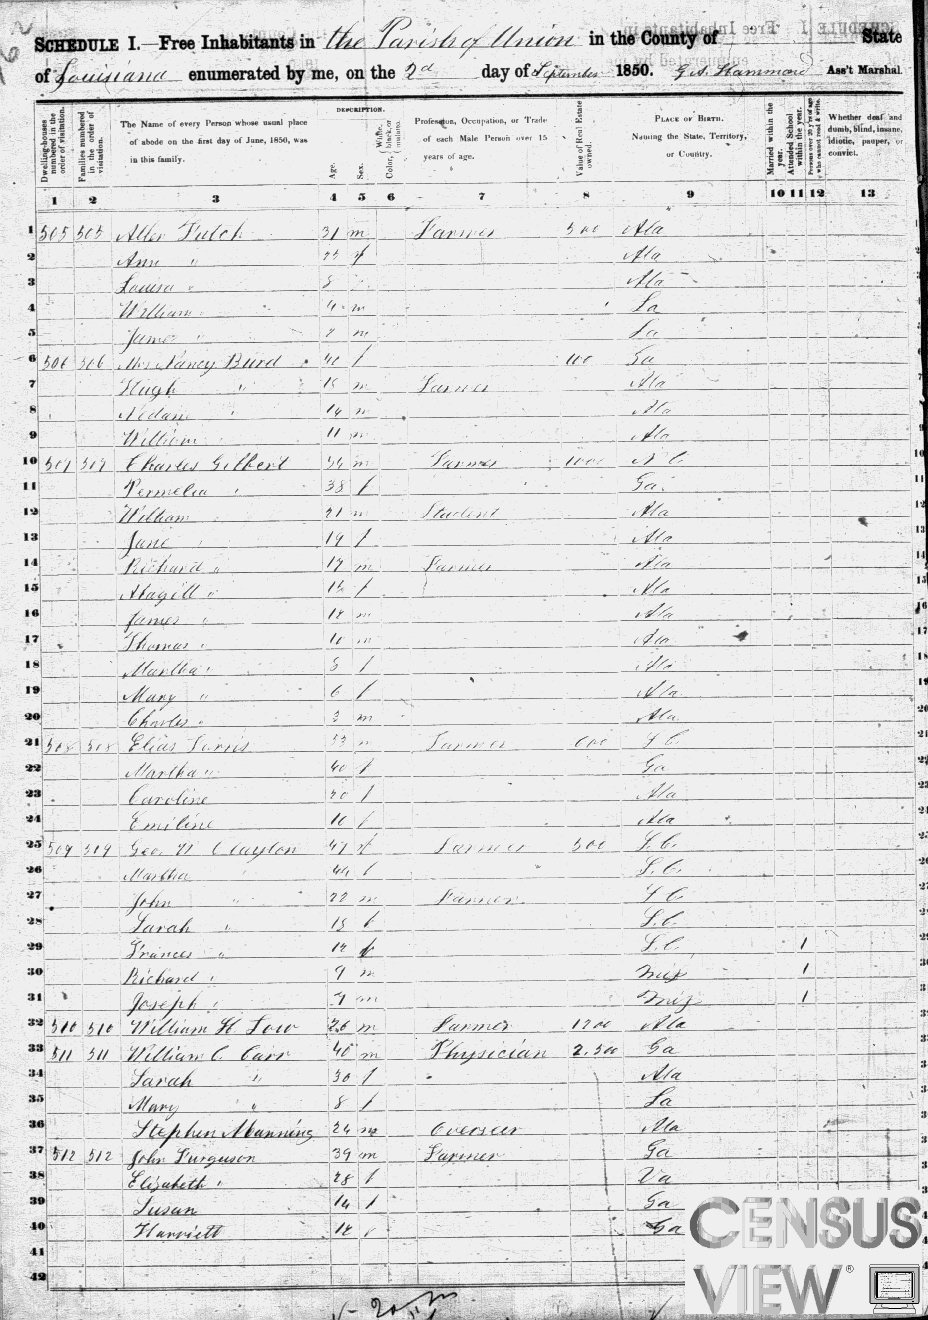 SCHEDULE I.—Free Inhabitants in the Parish of Union in the County of State
of Louisiana enumerated by me, on the 2d day of September 1850. G. A. Hammond Ass't Marshal.
Dwelling-houses numbered in the order of visitation.
Families numbered in the order of visitation.
The Name of every Person whose usual place of abode on the first day of June, 1850, was in this family.
DESCRIPTION.
Age.
Sex.
Color, White, black, or mulatto.
Profession, Occupation, or Trade of each Male Person over 15 years of age.
Value of Real Estate owned.
PLACE OF BIRTH. Naming the State, Territory, or Country.
Married within the year.
Attended School within the year.
Persons over 20 y'rs of age who cannot read & write.
Whether deaf and dumb, blind, insane, idiotic, pauper, or convict.
1 2 3 4 5 6 7 8 9 10 11 12 13
1 505 505 Allen Fulch 31 m Farmer 500 Ala
2 Ann " f Ala
3 Louisa " Ala
4 William 4 m La
5 James " m La
6 506 506 Mrs Nancy Burd 40 f 100 Ga
7 Hugh " m Farmer Ala
8 " 14 m Ala
9 William 11 m Ala
10 507 507 Charles Gilbert m Farmer 1000 N C
11 Permelia " 38 f Ga
12 William 21 m Student Ala
13 Jane " 19 f Ala
14 Richard " 17 m Farmer Ala
15 " f Ala
16 James " 12 m Ala
17 Thomas " 10 m Ala
18 Martha " f Ala
19 Mary " 6 f Ala
20 Charles " 3 m Ala
21 508 508 Elias 53 m Farmer 600 S C
22 Martha " 40 f Ga
23 Caroline 20 f Ala
24 Emiline f Ala
25 509 509 Geo. W Clayton 47 Farmer 300 S. C.
26 Martha 44 f S. C.
27 John " 22 m Farmer S C
28 Sarah " 15 f S. C
29 Frances " f S. C. 1
30 Richard " 9 m Miss 1
31 Joseph " 7 m Miss 1
32 510 510 William H Low 26 m Farmer 1200 Ala
33 511 511 William C Carr 40 m Physician 2.500 Ga
34 Sarah " 30 f Ala
35 Mary " 8 f La
36 Stephen Manning 24 m Overseer Ala
37 512 512 John Furguson 39 m Farmer Ga
38 Elizabeth " 28 f Va
39 Susan 14 f Ga
40 Harriett 12 f Ga
41
42
CENSUS
VIEW®